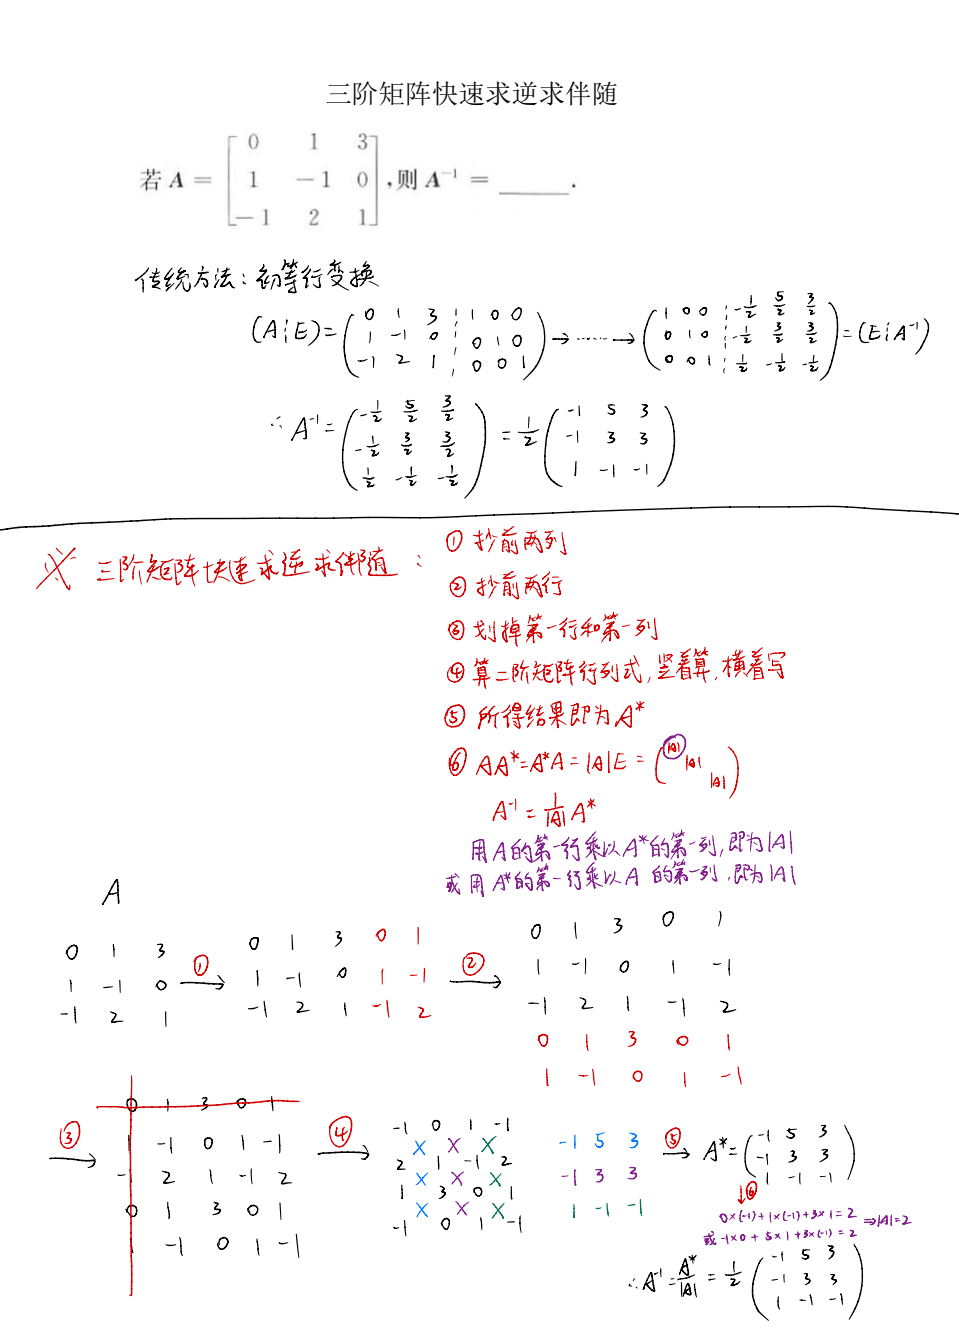 三阶矩阵快速求逆求伴随
若 A = [0 1 3
1 -1 0
-1 2 1], 则 A⁻¹ = ______.
传统方法：初等行变换
(A¦E) = (0 1 3 ¦ 1 0 0
1 -1 0 ¦ 0 1 0
-1 2 1 ¦ 0 0 1) → ······ → (1 0 0 ¦ -1/2 5/2 3/2
0 1 0 ¦ -1/2 3/2 3/2
0 0 1 ¦ 1/2 -1/2 -1/2) = (E¦A⁻¹)
∴ A⁻¹ = (-1/2 5/2 3/2
-1/2 3/2 3/2
1/2 -1/2 -1/2) = 1/2 (-1 5 3
-1 3 3
1 -1 -1)
※ 三阶矩阵快速求逆求伴随：
① 抄前两列
② 抄前两行
③ 划掉第一行和第一列
④ 算二阶矩阵行列式，竖着算，横着写
⑤ 所得结果即为A*
⑥ AA*=A*A=|A|E=(|A| |A| |A|)
A⁻¹ = 1/|A| A*
用A的第一行乘以A*的第一列，即为|A|
或用A*的第一行乘以A的第一列，即为|A|
A
0 1 3
1 -1 0
-1 2 1
① →
0 1 3 0 1
1 -1 0 1 -1
-1 2 1 -1 2
② →
0 1 3 0 1
1 -1 0 1 -1
-1 2 1 -1 2
0 1 3 0 1
1 -1 0 1 -1
③ →
0 1 3 0 1
1 -1 0 1 -1
-1 2 1 -1 2
0 1 3 0 1
1 -1 0 1 -1
④ →
-1 0 1 -1
2 1 -1 2
1 3 0 1
-1 0 1 -1
-1 5 3
-1 3 3
1 -1 -1
⑤ →
A* = (-1 5 3
-1 3 3
1 -1 -1)
↓ ⑥
0×(-1)+1×(-1)+3×1=2
或 -1×0+5×1+3×(-1)=2 ⇒|A|=2
∴ A⁻¹ = A*/|A| = 1/2 (-1 5 3
-1 3 3
1 -1 -1)